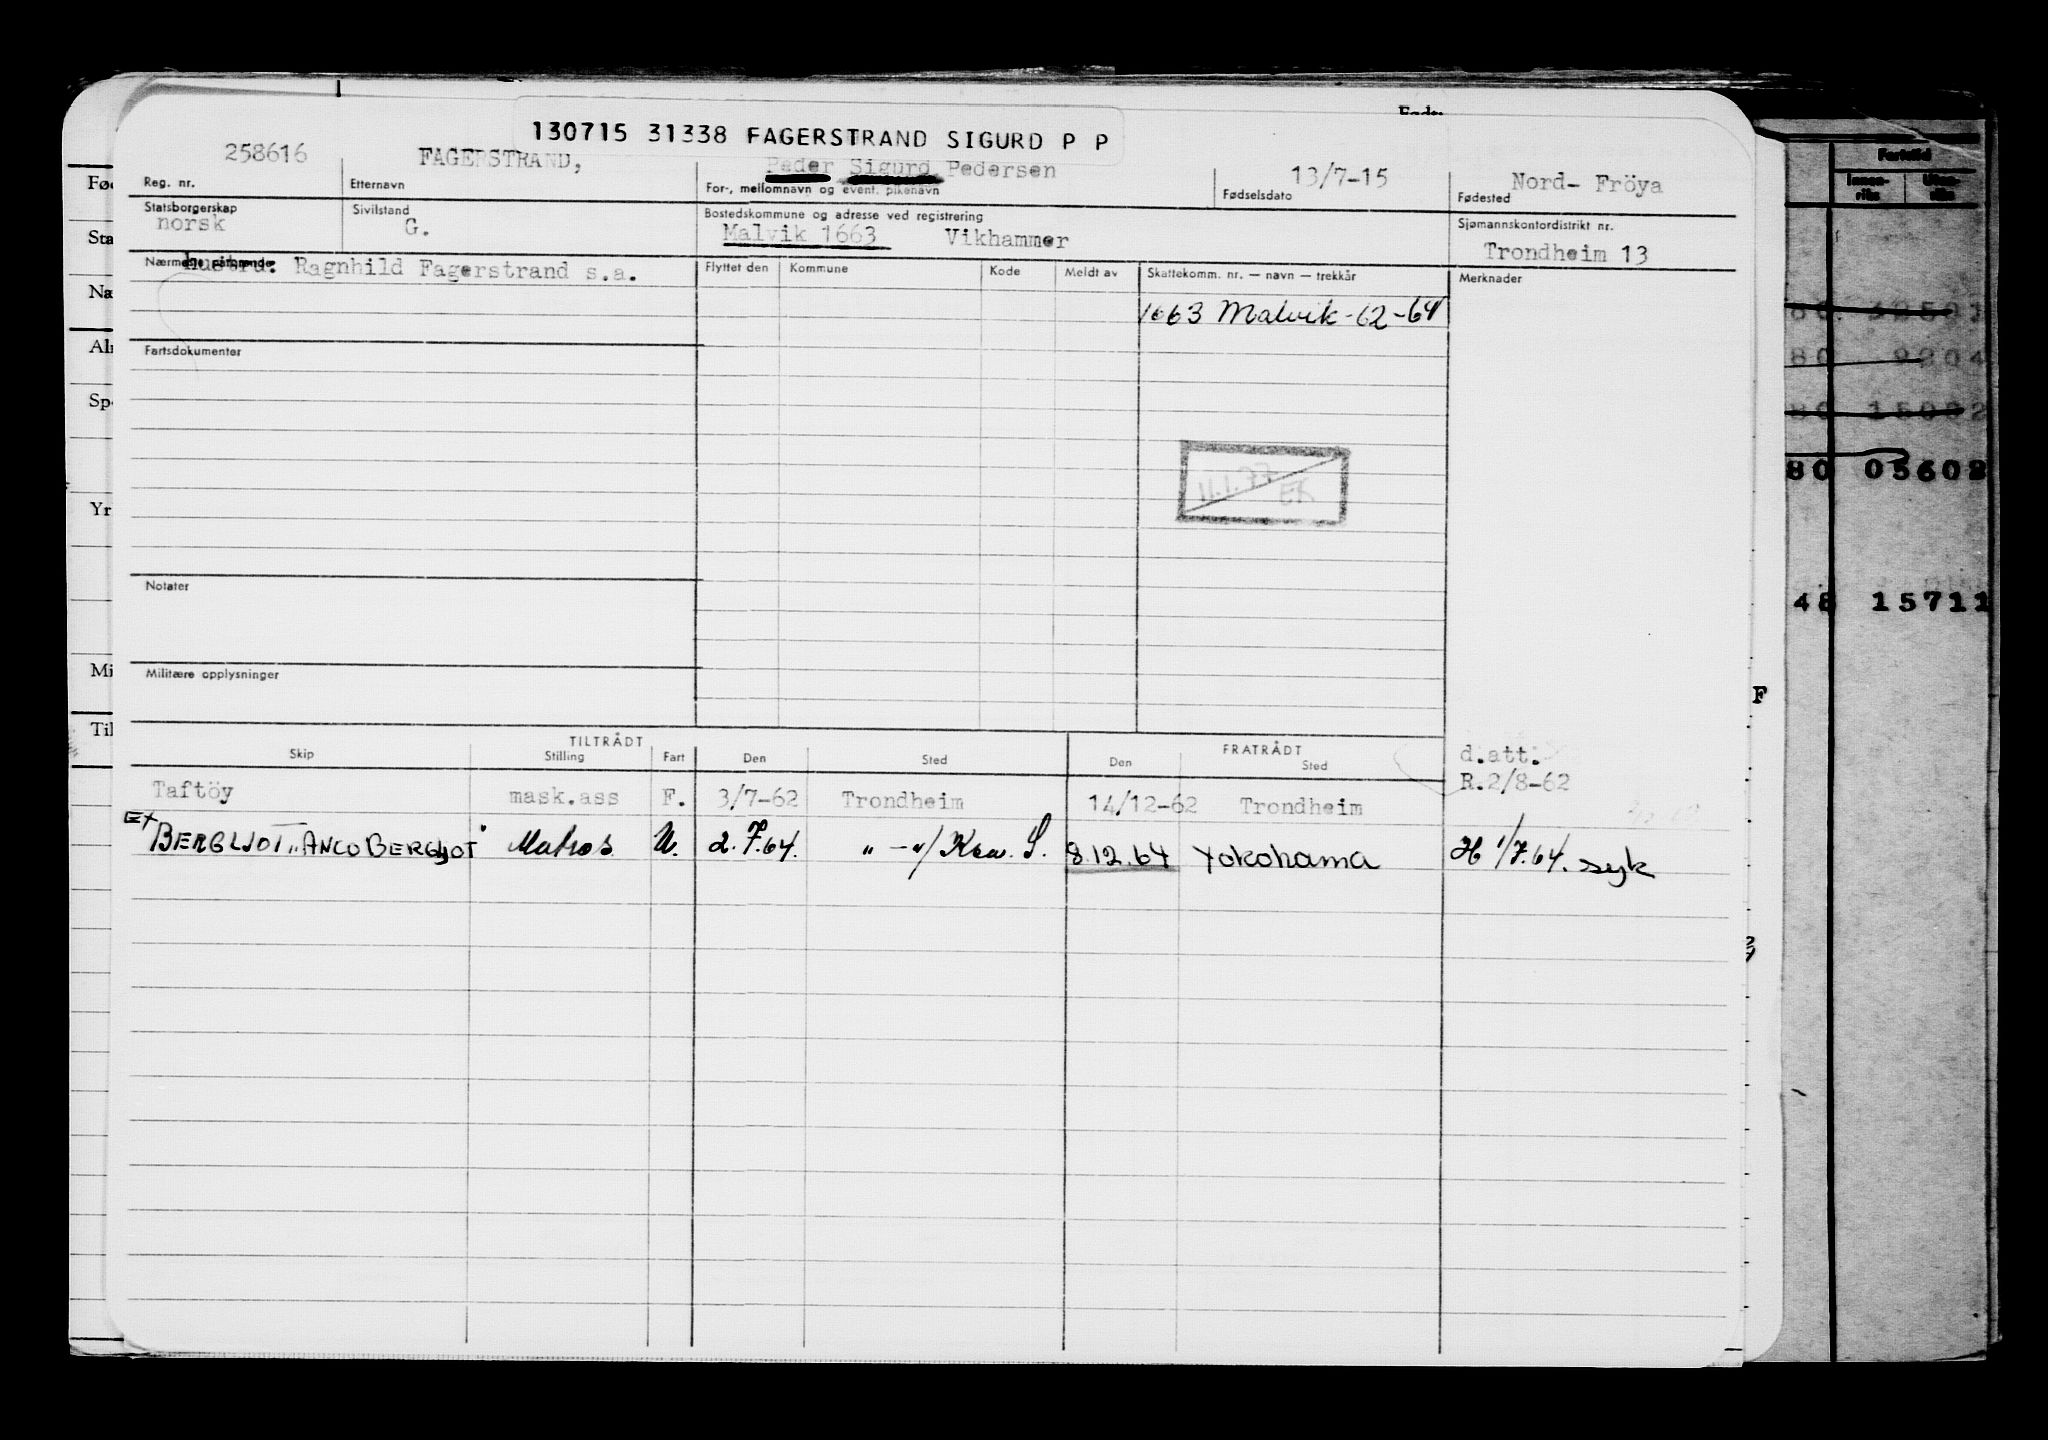 Født:
130715 31338 FAGERSTRAND SIGURD P P
258616 FAGERSTRAND, Peder Sigurd Pedersen 13/7-15 Nord- Fröya
Reg. nr. Etternavn For-, mellomnavn og event. pikenavn Fødselsdato Fødested
Statsborgerskap Sivilstand Bostedskommune og adresse ved registrering Sjømannskontordistrikt nr.
norsk G. Malvik 1663 Vikhammer Trondheim 13
Nærmeste pårørende
hustru: Ragnhild Fagerstrand s.a.
Flyttet den Kommune Kode Meldt av Skattekomm. nr. — navn — trekkår Merknader
1663 Malvik-62-64
Fartsdokumenter
11.1.77 EK
Notater
Militære opplysninger
TILTRÅDT FRATRÅDT
Skip Stilling Fart Den Sted Den Sted
d.att.
R.2/8-62
Taftöy mask.ass F. 3/7-62 Trondheim 14/12-62 Trondheim
Ex
BERGLJOT "ANCO BERGLJOT" Matros U. 2.7.64. " - " / 8.12.64 Yokohama H 1/7.64. syk
Fartstid
Innen-
riks
Uten-
riks
80 9204
80 15032
80 05608
48 15711
F